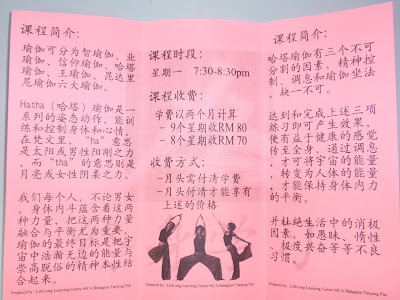 课程简介:
瑜伽可分为智瑜伽、业
瑜伽、信仰瑜伽、哈塔
瑜伽、王瑜伽、昆达里
尼瑜伽六大瑜伽。
Hatha (哈塔) 瑜伽是一
系列的姿态动作、能训
练和控制身体和心情。
在梵文里, “ha” 意思
是太阳或男性阳刚之力
, 而 “tha” 的意思则是
月亮或女性阴柔之力。
我们每个人, 不论男女
, 身体内斗蕴含着这两
种力量, 把这两种力量
融合与平衡尤为重要。
瑜伽的最终目标是把宇
宙中浩瀚无边的能量与
崇高脱俗的精神本性结
合起来。
Prepared by: LifeLong Learning Centre
课程时段:
星期一 7:30-8:30pm
课程收费:
学费以两个月计算
– 9个星期收RM 80
– 8个星期收RM 70
收费方式:
–月头需付清学费
–月头付清才能享有
上述的价格
Prepared by: LifeLong Learning Centre
课程简介:
哈塔瑜伽有三个不可
分割的因素, 精神控
制、调息和瑜伽坐法
, 缺一不可。
达到和完成上述三项
练习即可产生效果,
使有益于健康的感觉
传至全身, 通过调息
, 才可将宇宙的能量
, 转变为人体的能量
, 才能保持身体内力
的平衡。
并杜绝生活中的消极
因素, 如愚昧、惰性
、极度兴奋等等不良
习惯。
Prepared by: LifeLong Learning Centre